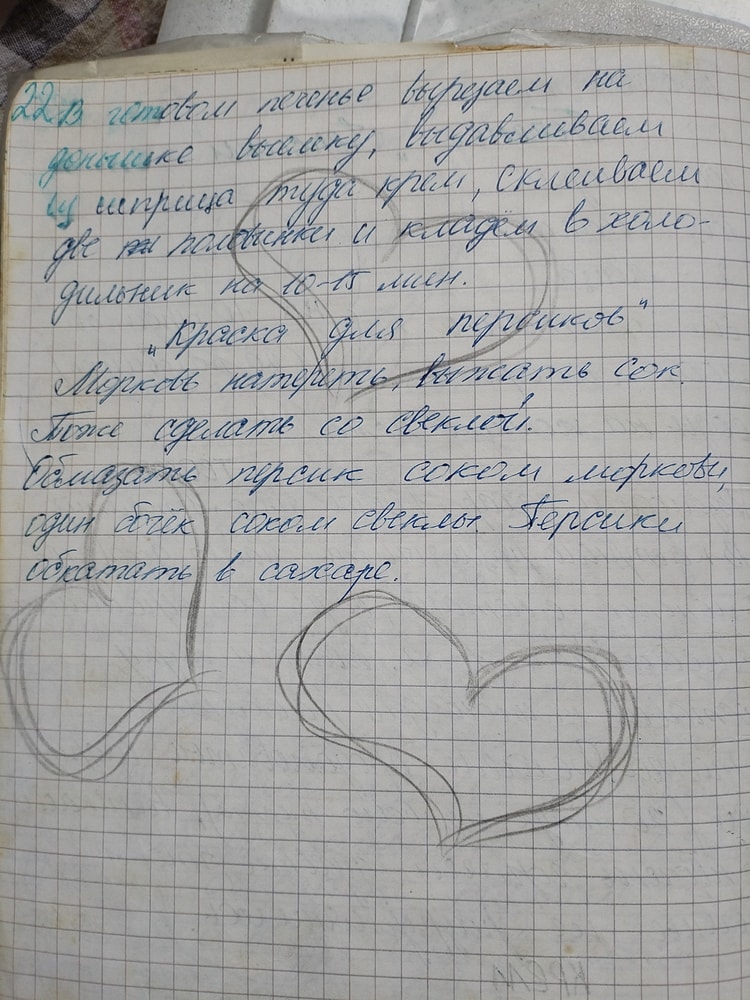 22 В готовом печенье вырезаем на
донышке выемку, выдавливаем
из шприца туда крем, склеиваем
две половинки и кладём в холо-
дильник на 10-15 мин.
"Краска для персиков"
Морковь натереть, выжать сок.
Тоже сделать со свеклой.
Обмазать персик соком моркови,
один бочёк соком свеклы. Персики
обкатать в сахаре.